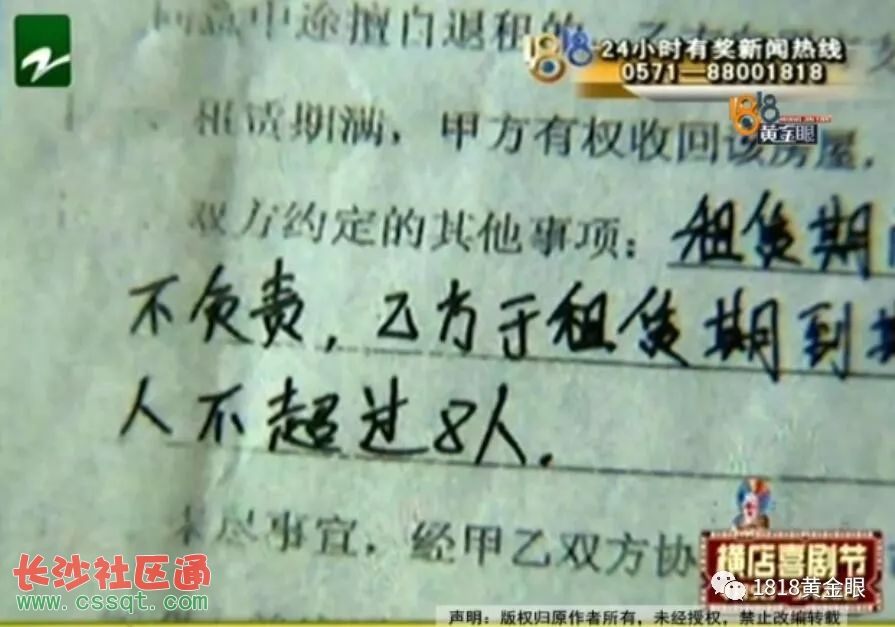 中途擅自退租的
24小时有奖新闻热线
0571—88001818
1818
黄金眼
租赁期满，甲方有权收回该房屋，
双方约定的其他事项：租赁期
不负责，乙方于租赁期到
人不超过8人.
未尽事宜，经甲乙双方协
横店喜剧节
1818黄金眼
长沙社区通
www.cssqt.com
声明：版权归原作者所有，未经授权，禁止改编转载